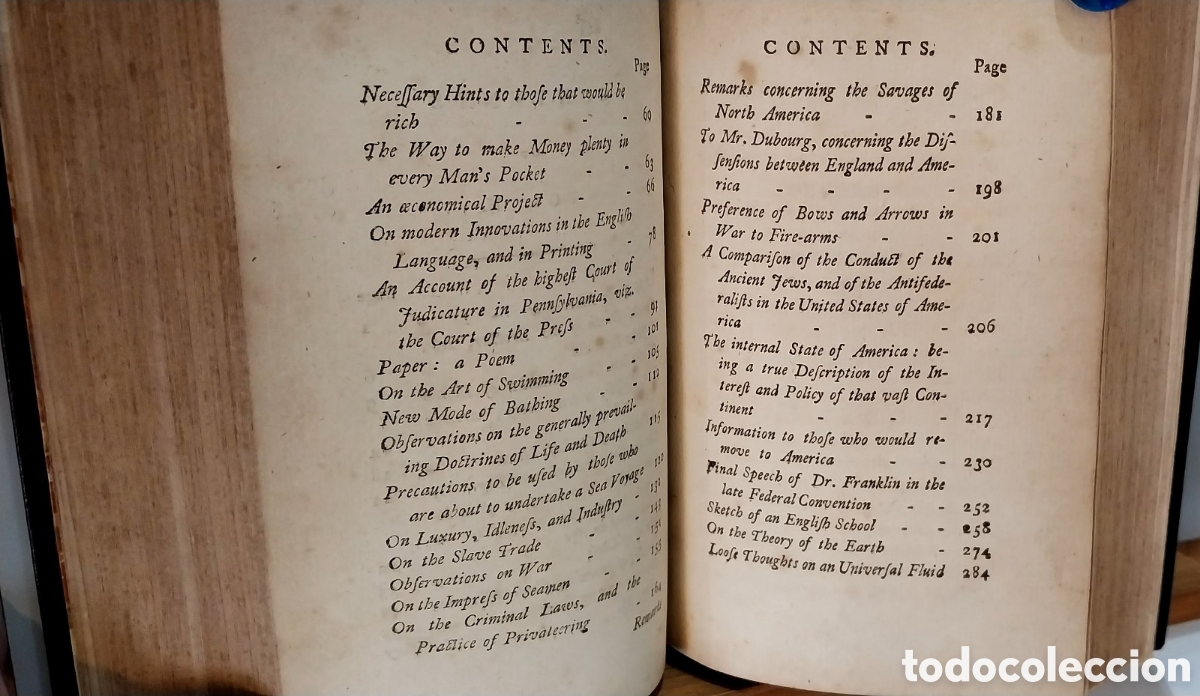 CONTENTS.
Page
Neceſſary Hints to thoſe that would be
rich - - - 60
The Way to make Money plenty in
every Man's Pocket - - 63
An œconomical Project - - 66
On modern Innovations in the Engliſh
Language, and in Printing - 78
An Account of the higheſt Court of
Judicature in Pennſylvania, viz.
the Court of the Preſs - - 93
Paper: a Poem - - 101
On the Art of Swimming - 105
New Mode of Bathing - - 112
Obſervations on the generally prevail-
ing Doctrines of Life and Death 115
Precautions to be uſed by thoſe who
are about to undertake a Sea Voyage
On Luxury, Idleneſs, and Induſtry -
On the Slave Trade - 145
Obſervations on War - 151
On the Impreſs of Seamen - - 155
On the Criminal Laws, and the
Practice of Privateering - 164
Remarks
CONTENTS.
Page
Remarks concerning the Savages of
North America - - 181
To Mr. Dubourg, concerning the Diſ-
ſenſions between England and Ame-
rica - - - - 198
Preference of Bows and Arrows in
War to Fire-arms - - 201
A Compariſon of the Conduct of the
Ancient Jews, and of the Antifede-
raliſts in the United States of Ame-
rica - - - 206
The internal State of America: be-
ing a true Deſcription of the In-
tereſt and Policy of that vaſt Con-
tinent - - - 217
Information to thoſe who would re-
move to America - - 230
Final Speech of Dr. Franklin in the
late Federal Convention - - 252
Sketch of an Engliſh School - - 258
On the Theory of the Earth - 274
Looſe Thoughts on an Univerſal Fluid 284
todocoleccion